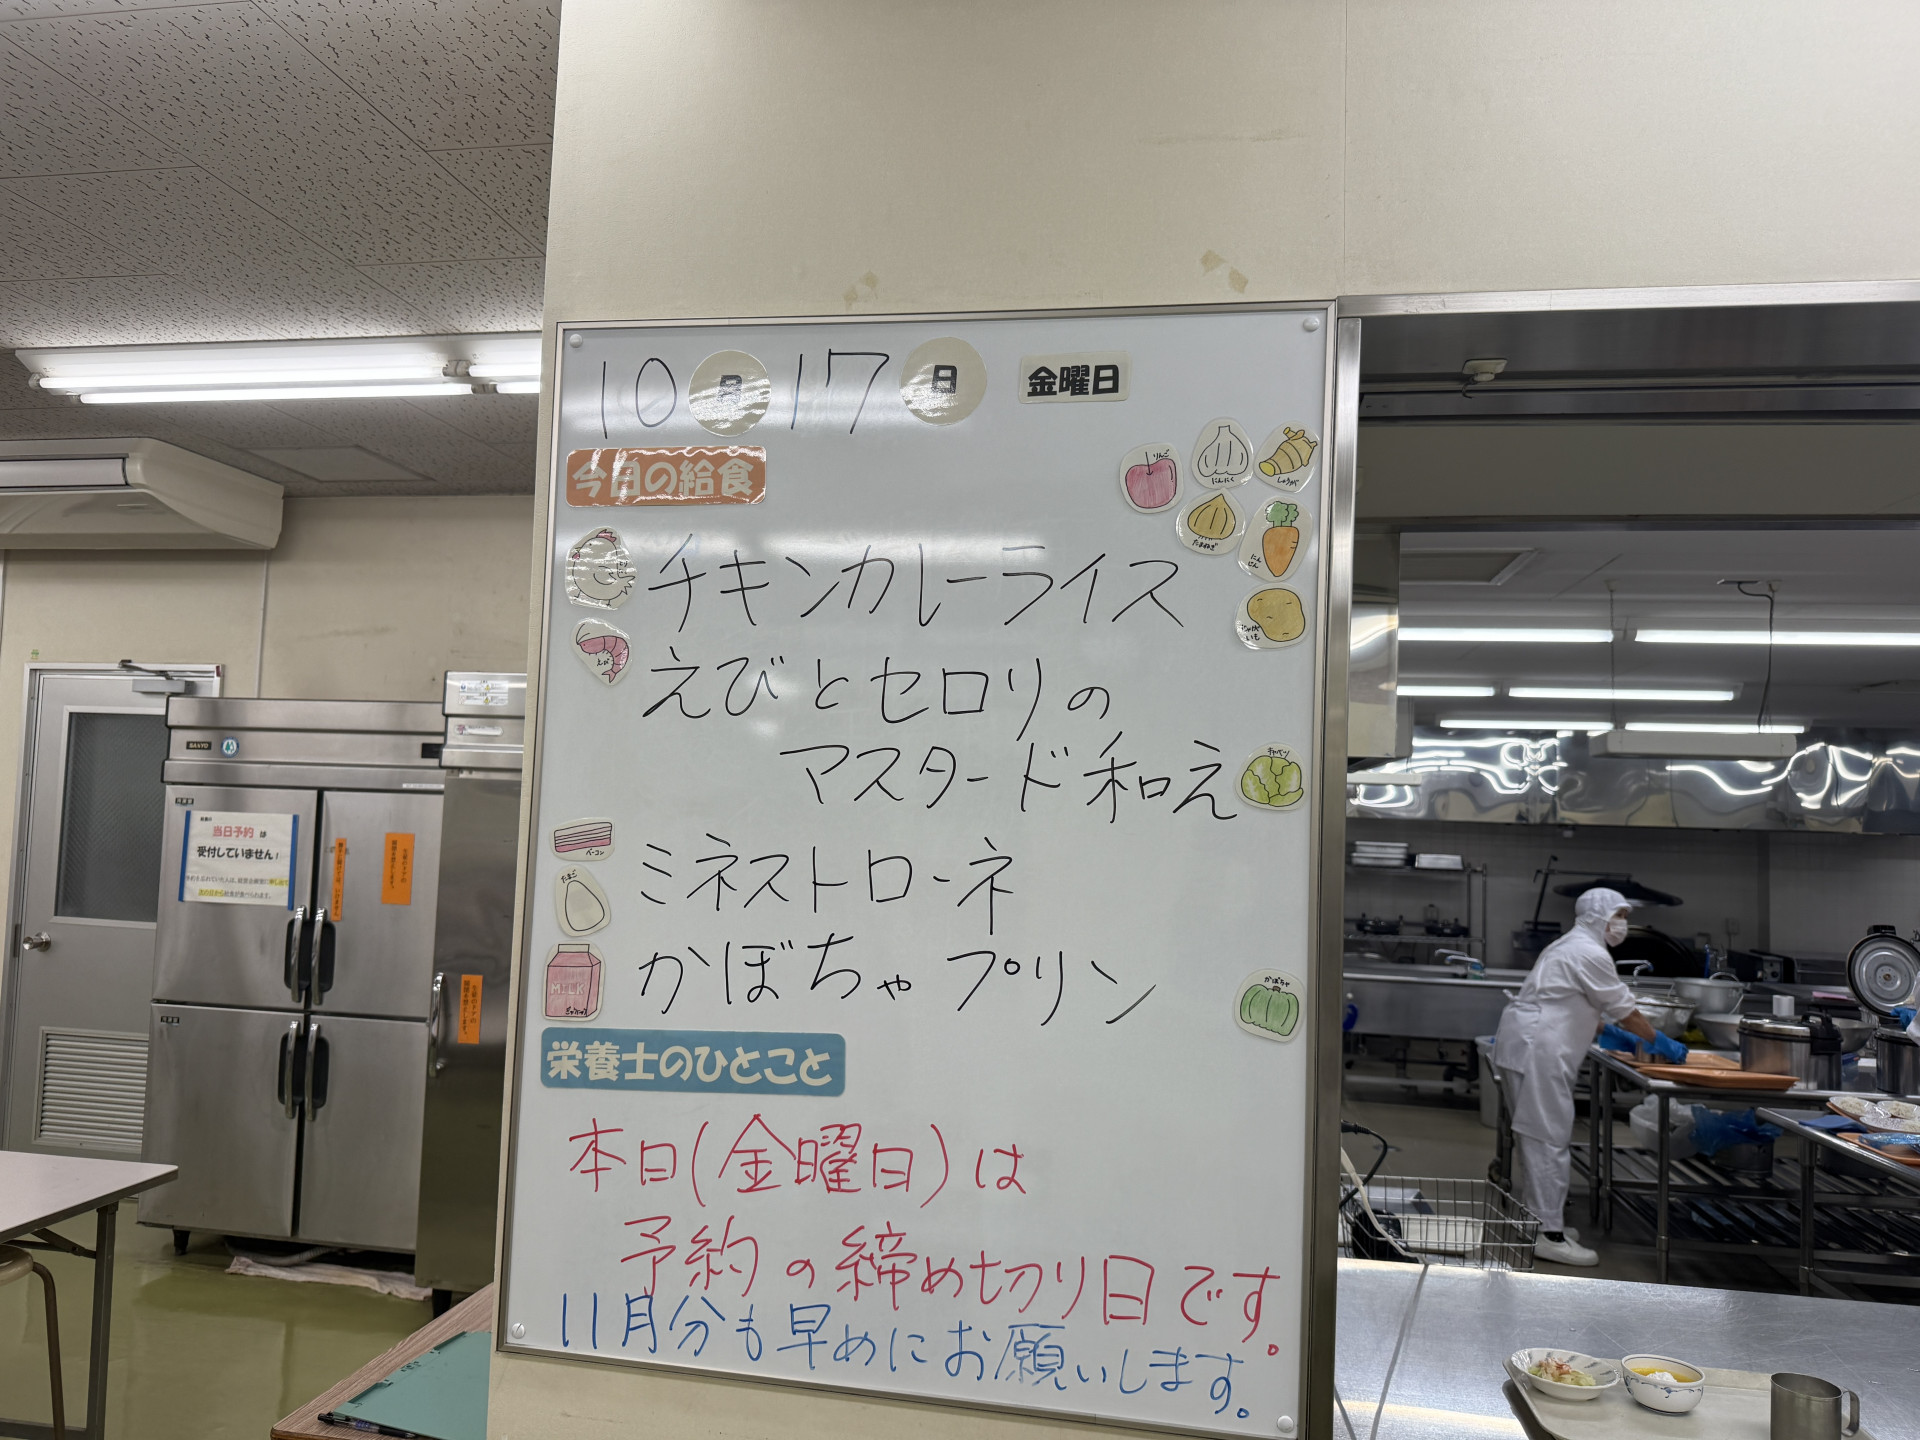 10月17日 金曜日
今日の給食
りんご
にんにく
しょうが
たまねぎ
にんじん
じゃがいも
とりにく
チキンカレーライス
えび
えびとセロリの
マスタード和え
キャベツ
ベーコン
たまご
ミネストローネ
MILK
かぼちゃプリン
かぼちゃ
栄養士のひとこと
本日(金曜日)は
予約の締め切り日です。
11月分も早めにお願いします。
SANYO
当日予約は
受付していません!